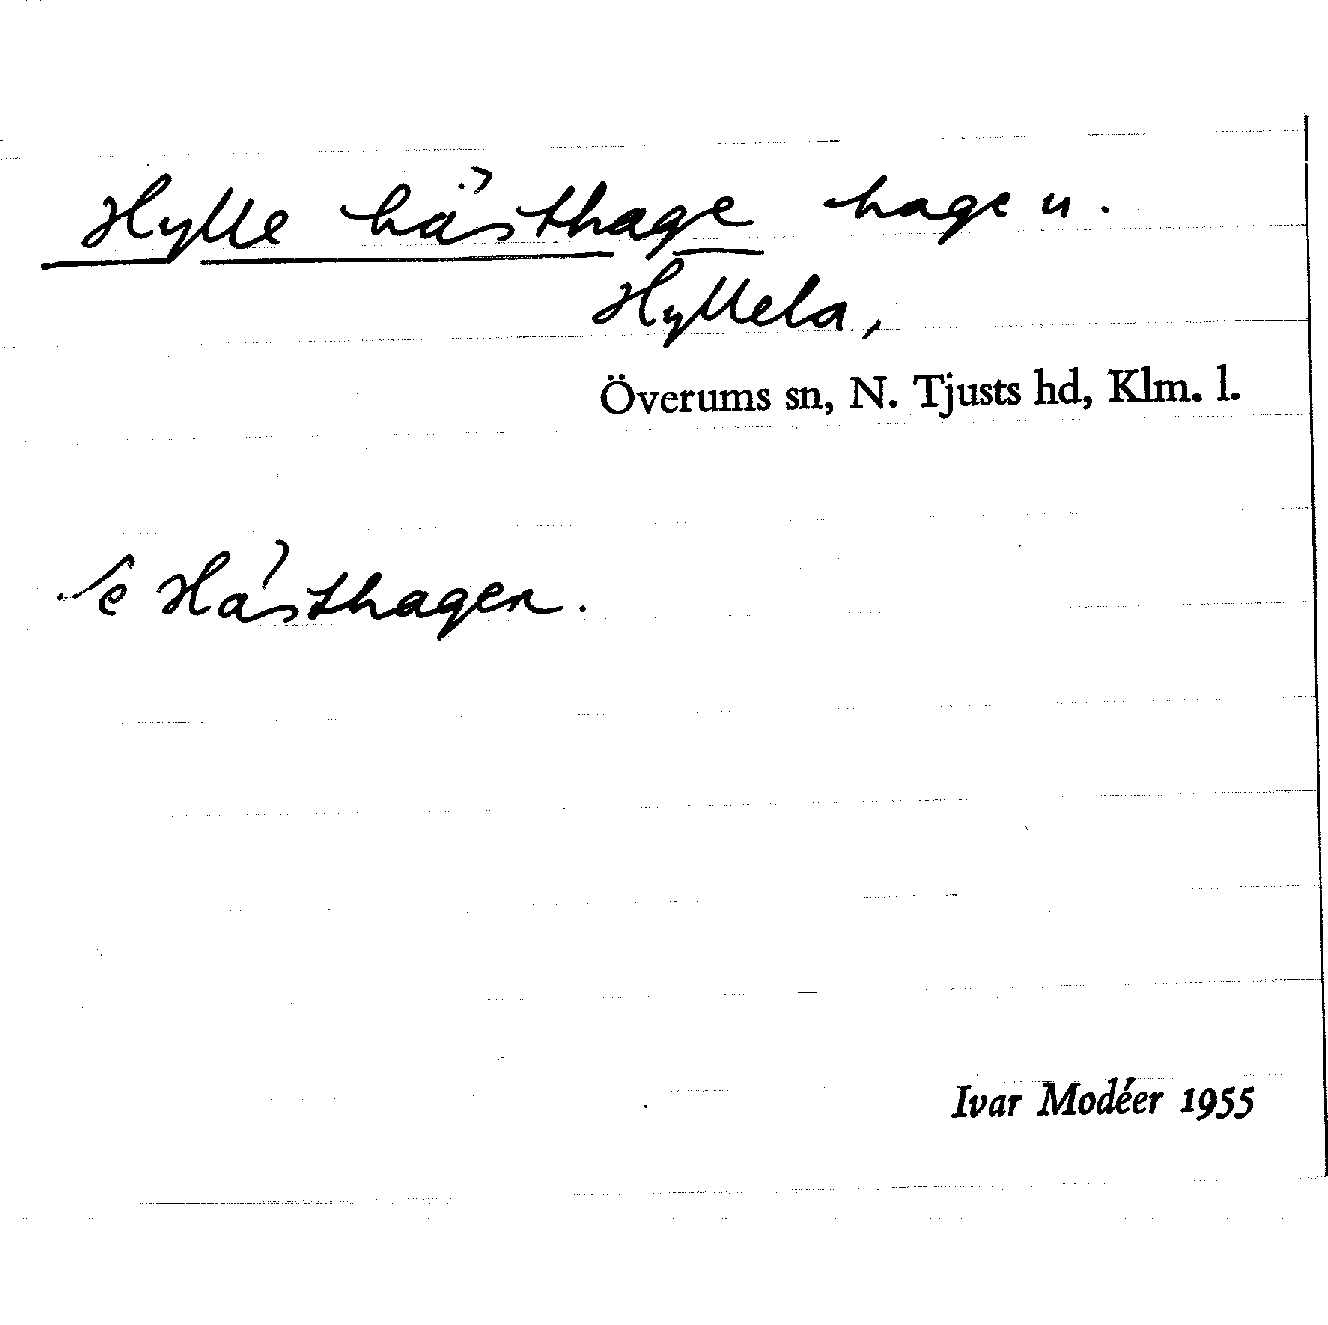 Hylle hästhage hagen.
Hyllela,
Överums sn, N. Tjusts hd, Klm. l.
Se Hästhagen.
Ivar Modéer 1955